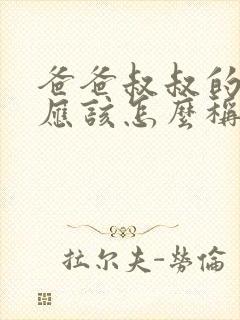 爸爸叔叔的
應該怎麼稱
拉尔夫-勞倫